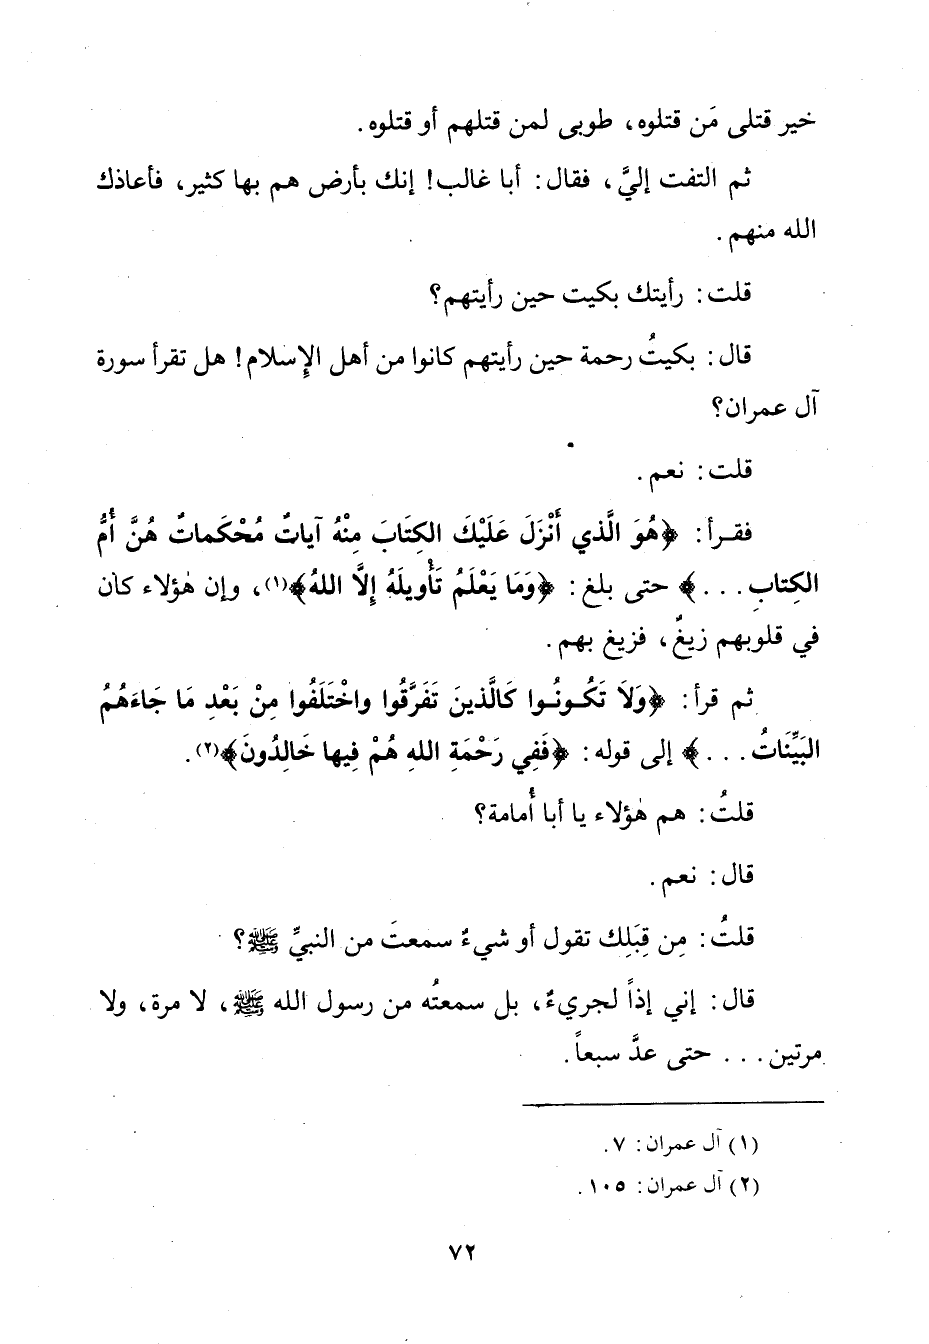 خير قتلى مَن قتلوه، طوبى لمن قتلهم أو قتلوه.
ثم التفت إليَّ، فقال: أبا غالب! إنك بأرض هم بها كثير، فأعاذك
الله منهم.
قلت: رأيتك بكيت حين رأيتهم؟
قال: بكيتُ رحمة حين رأيتهم كانوا من أهل الإِسلام! هل تقرأ سورة
آل عمران؟
قلت: نعم.
فقرأ: ﴿هُوَ الَّذي أَنْزَلَ عَلَيْكَ الكِتَابَ مِنْهُ آياتٌ مُحْكَماتٌ هُنَّ أُمُّ
الكِتابِ...﴾ حتى بلغ: ﴿وَمَا يَعْلَمُ تَأْويلَهُ إِلَّا اللهُ﴾(١)، وإن هٰؤلاء كان
في قلوبهم زيغٌ، فزيغ بهم.
ثم قرأ: ﴿وَلَا تَكُونُوا كَالَّذينَ تَفَرَّقُوا واخْتَلَفُوا مِنْ بَعْدِ مَا جَاءَهُمُ
البَيِّنَاتُ...﴾ إلى قوله: ﴿فَفِي رَحْمَةِ اللهِ هُمْ فِيها خَالِدُونَ﴾(٢).
قلتُ: هم هٰؤلاء يا أبا أُمامة؟
قال: نعم.
قلتُ: مِن قِبَلِك تقول أو شيءٌ سمعتَ من النبيِّ ﷺ؟
قال: إني إذاً لجريءٌ، بل سمعتُه من رسول الله ﷺ، لا مرة، ولا
مرتين... حتى عدَّ سبعاً.
(١) آل عمران: ٧.
(٢) آل عمران: ١٠٥.
٧٢